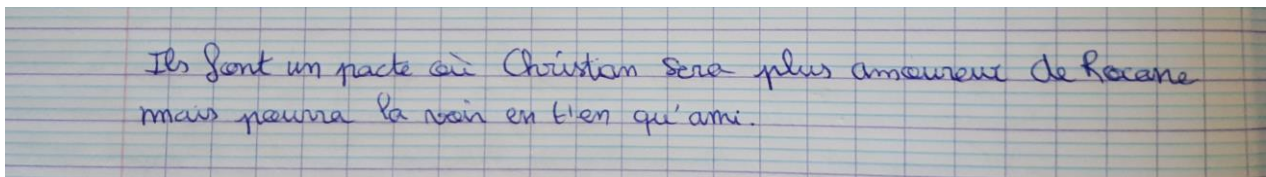 Ils font un pacte où Christian sera plus amoureux de Roxane
mais pourra la voir en t'en qu'ami.